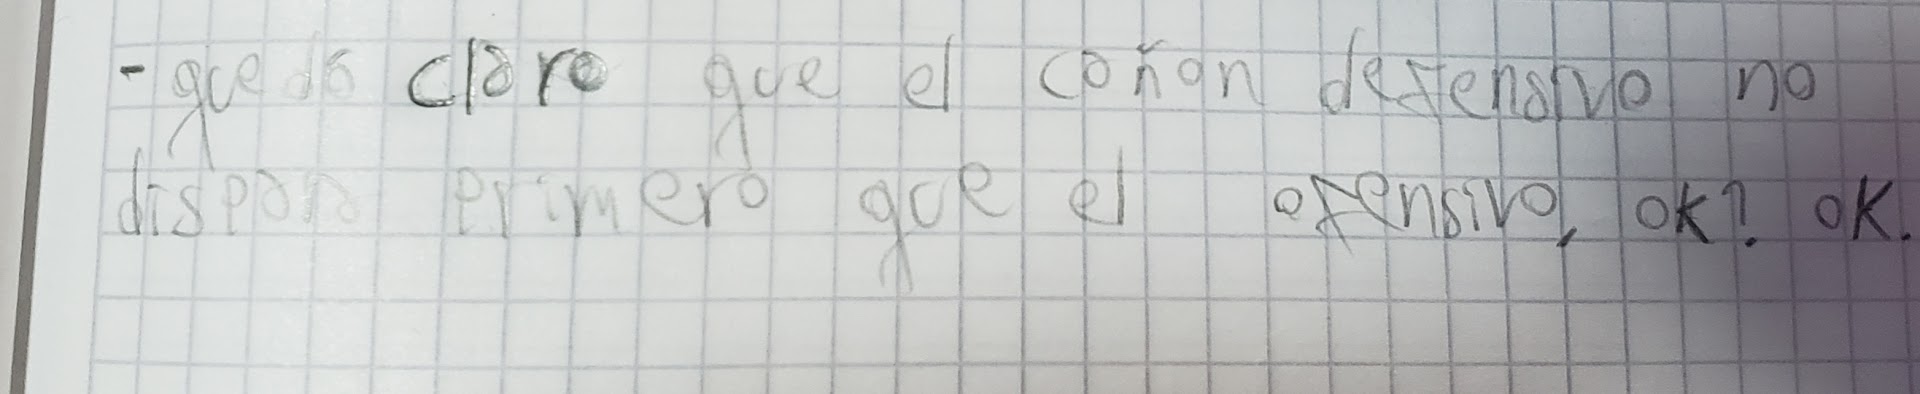 - queda claro que el cañon defensivo no
dispara primero que el ofensivo, ok? ok.